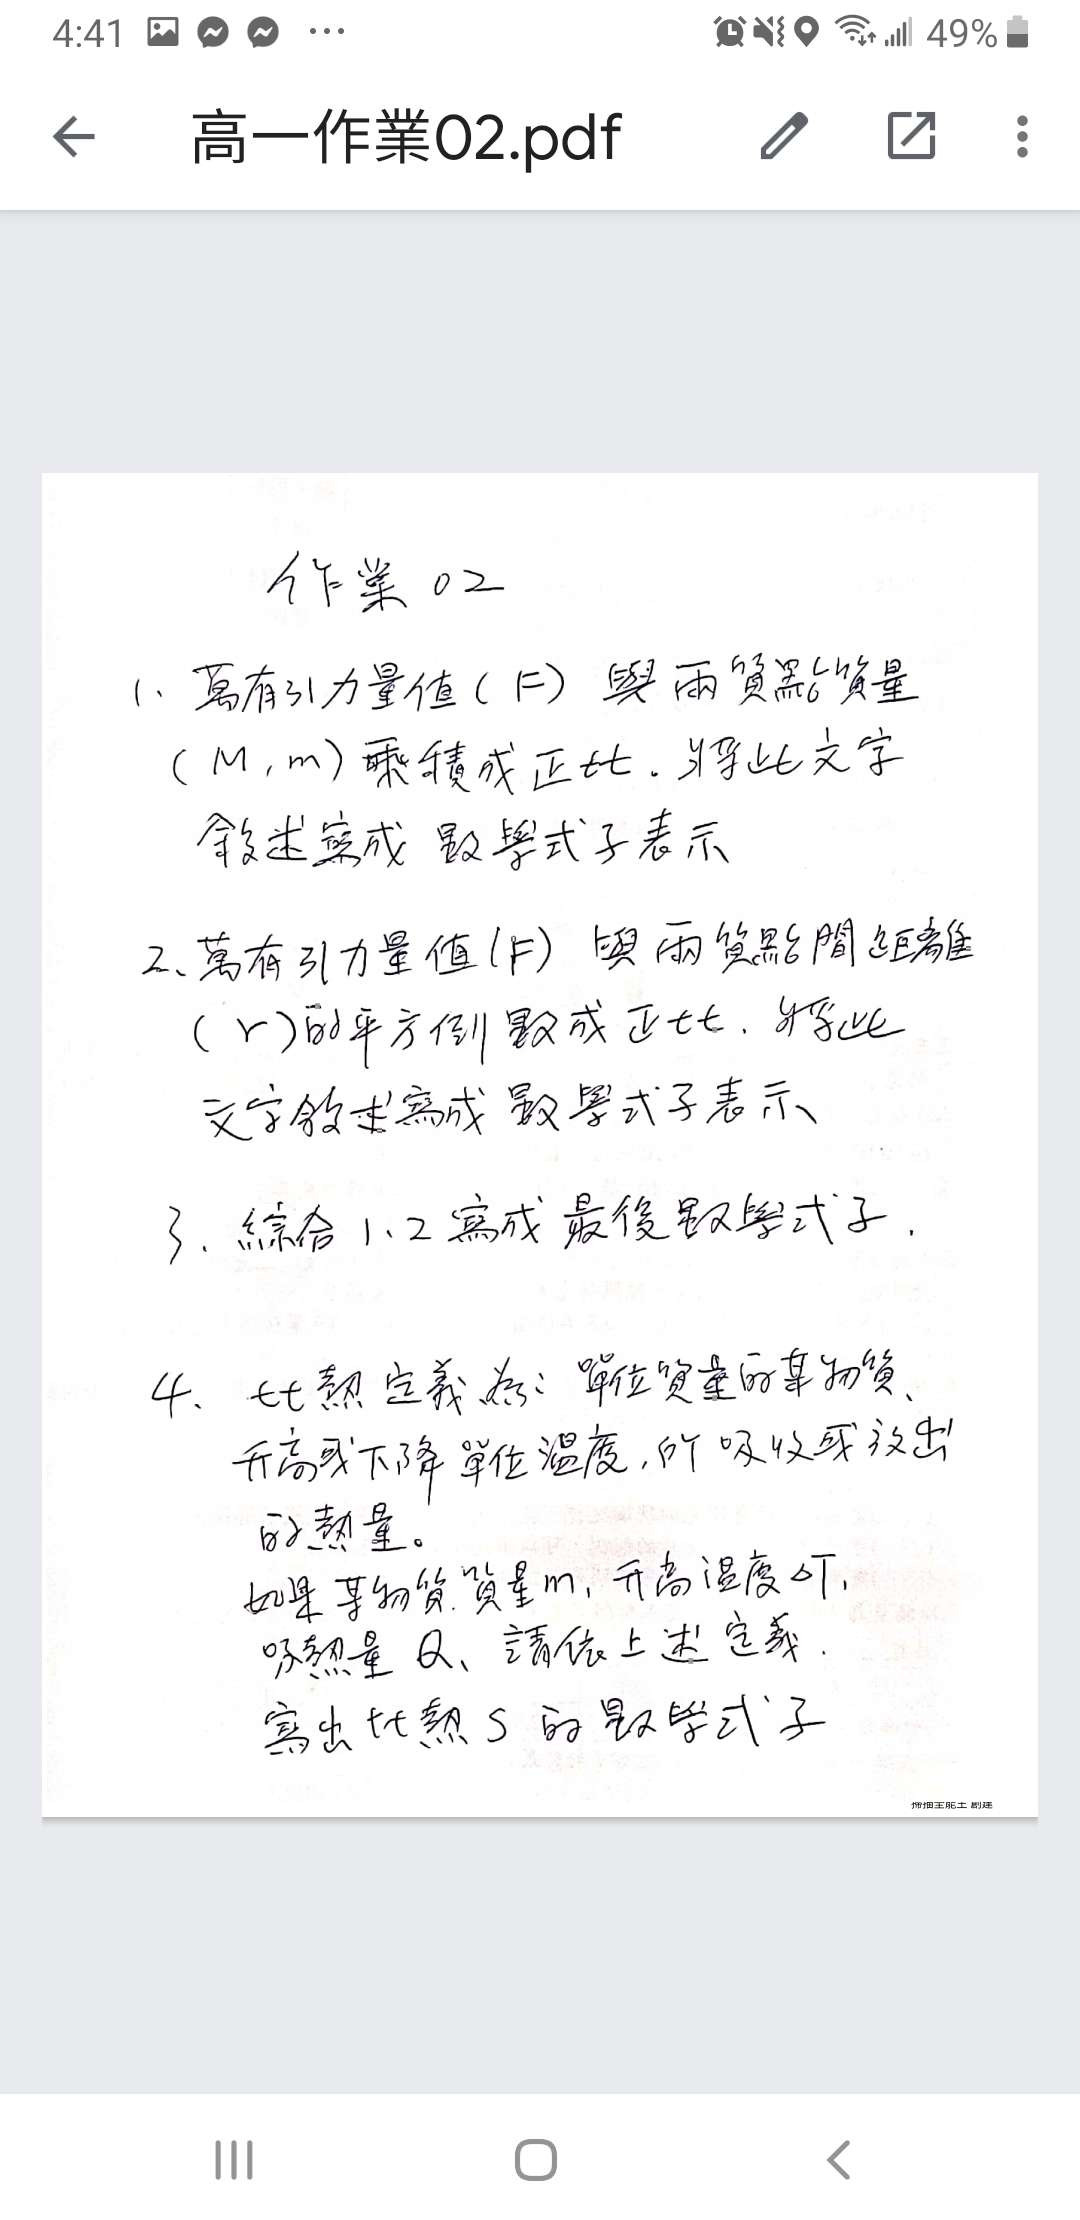 4:41
49%
高一作業02.pdf
作業 02
1、萬有引力量值(F) 與兩質點質量
(M,m)乘積成正比.將此文字
敘述寫成 數學式子表示
2、萬有引力量值(F) 與兩質點間距離
(r)的平方倒數成正比.將此
文字敘述寫成數學式子表示
3、綜合1、2寫成最後數學式子.
4、比熱定義為:單位質量的某物質、
升高或下降單位溫度,所吸收或放出
的熱量。
如果某物質質量m,升高溫度△T,
吸熱量Q、請依上述定義.
寫出比熱S的數學式子
掃描全能王 創建